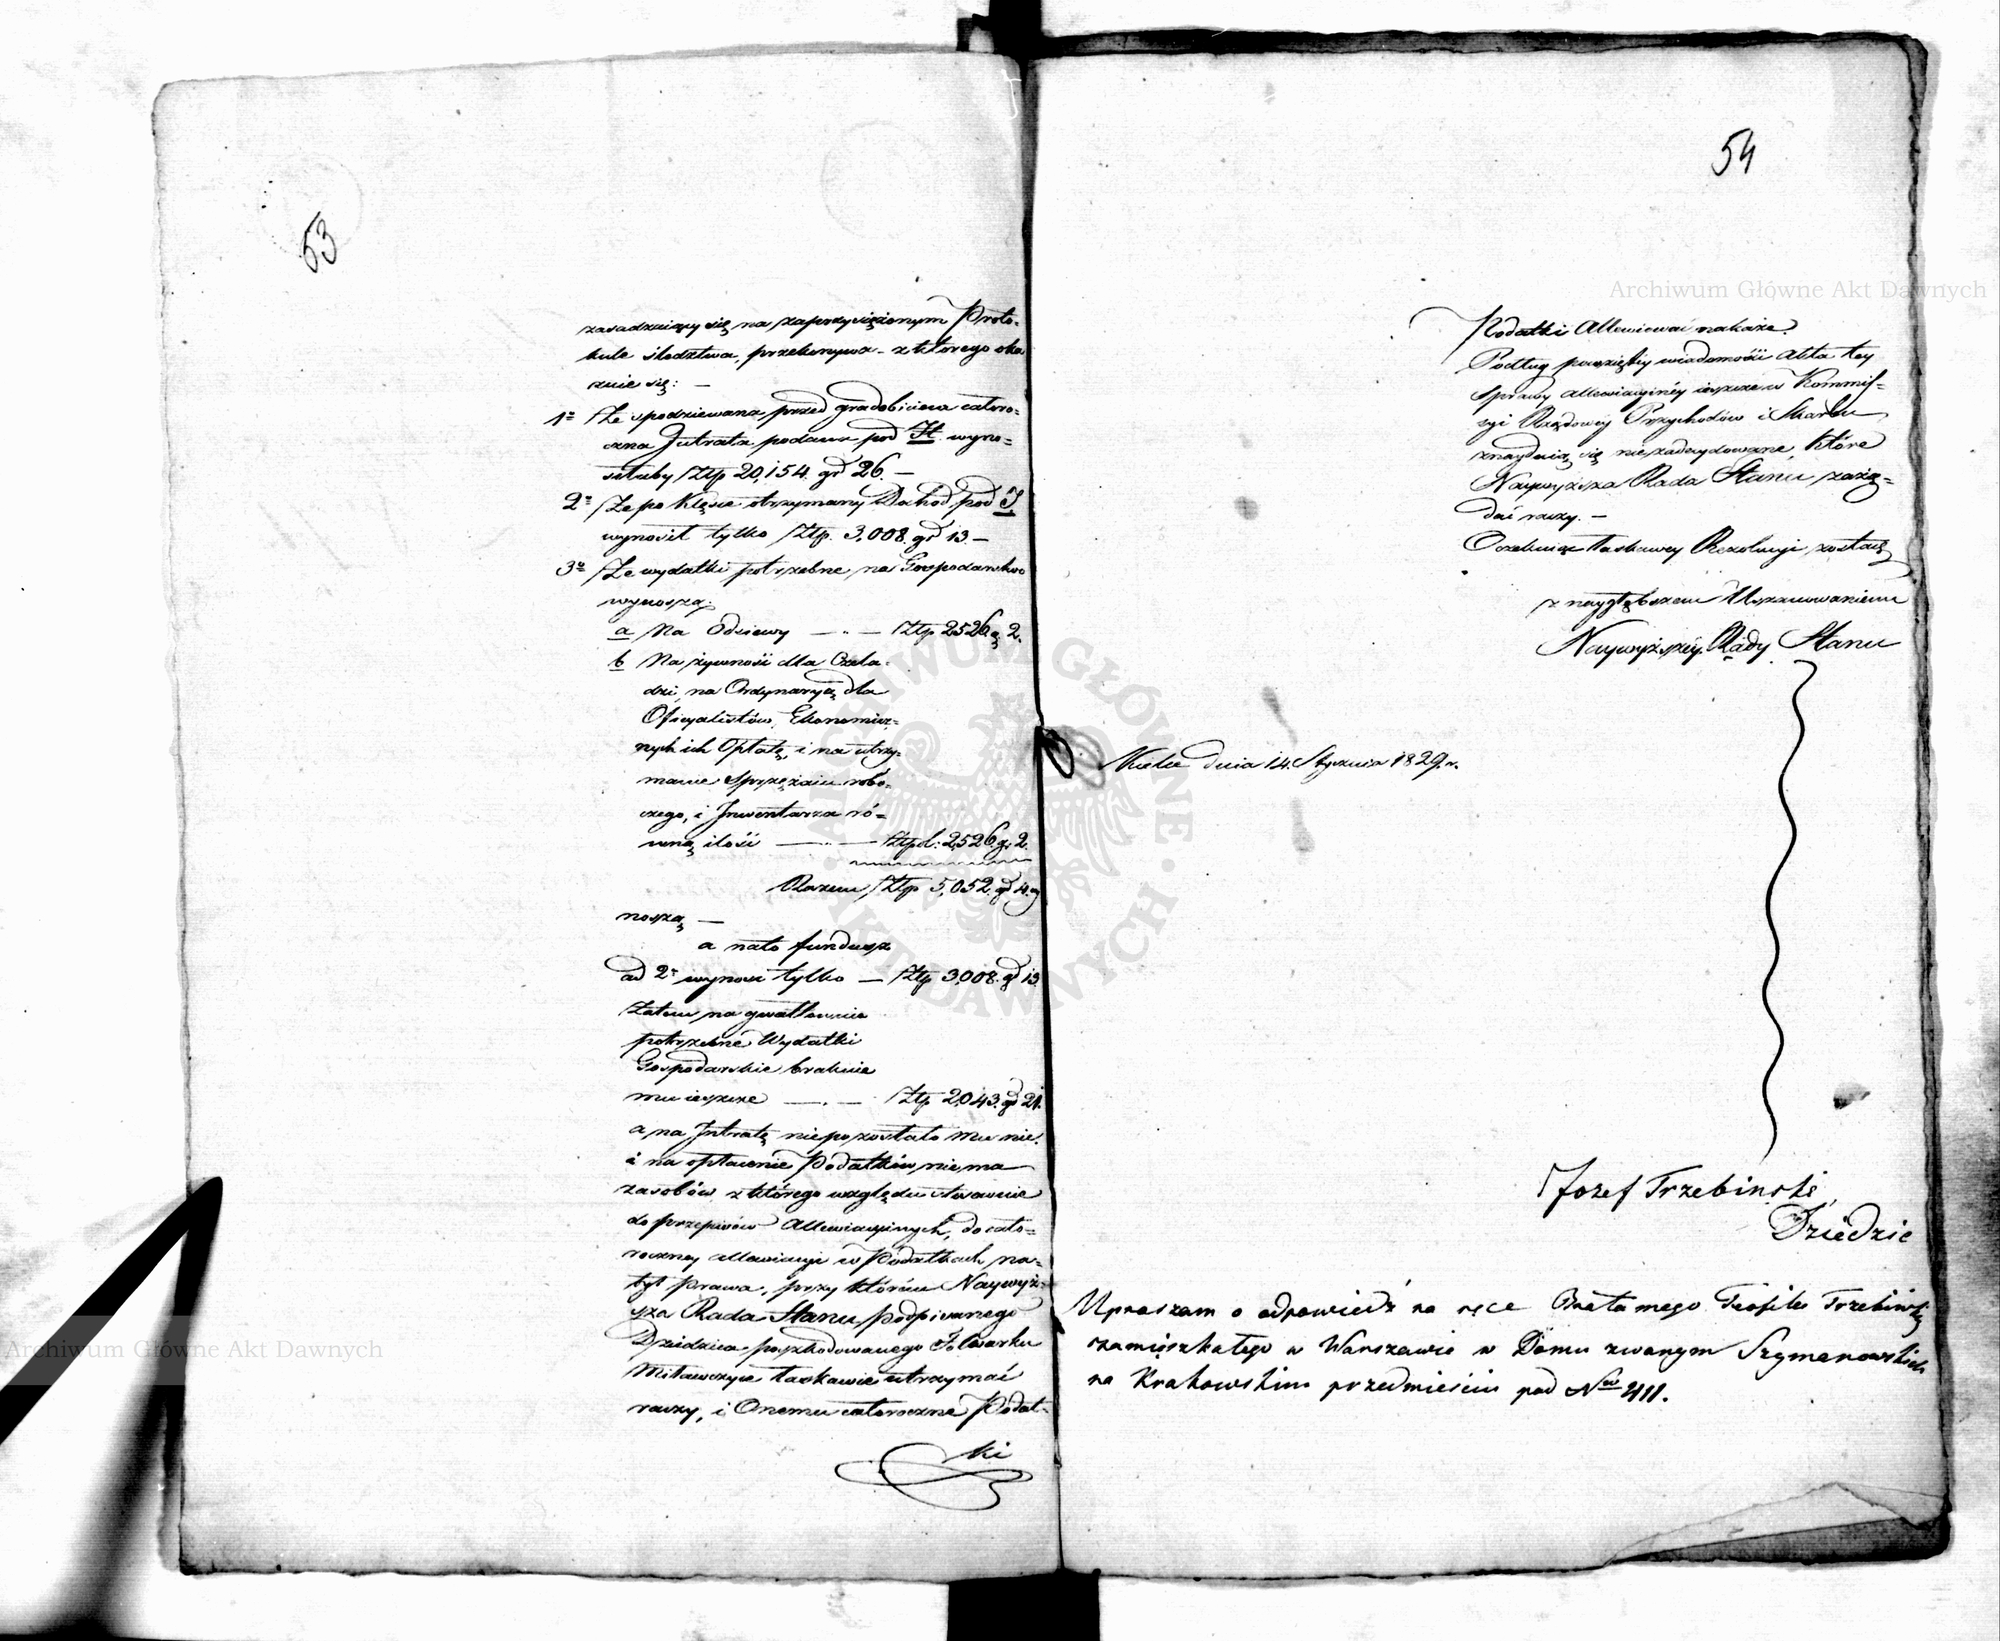 53
zasadzaiący się na zaprzysiężonym Proto-
kule śledztwa, przekonywa - z którego oka
zuie się: —
1º Że spodziewana przed gradobiciem całoro-
czna Intrata podana pod H wyno-
siłaby Złp 20,154. gr 26. —
2º Że po klęsce otrzymany Dochód pod J
wynosił tylko Złp. 3,008. gr 13. —
3º Że wydatki potrzebne na Gospodarstwo
wynoszą:
a Na Odsiewy — „ — Złp 2526. g. 2.
b Na żywność dla Czela-
dzi, na Ordynaryą dla
Oficyalistów Ekonomicz-
nych ich Opłatę, i na utrzy-
manie Sprzężaiu robo-
czego, i Inwentarza ró-
wną ilość — „ — Złpl: 2,526. gr. 2.
Razem Złp 5,052. gr 4. wy
noszą —
a nato fundusz
ad 2º wynosi tylko — Złp 3,008. gr 13.
Zatem na gwałtownie
potrzebne Wydatki
Gospodarskie braknie
mu ieszcze — „ — Złp 2,043. gr 21.
a na Intratę nie pozostało mu nic.
i na opłacenie Podatków nie ma
zasobów z którego względu stosownie
do przepisów Allewiacyinych, do cało-
roczney allewiacyi w Podatkach na-
był prawa, przy którém Naywyż-
sza Rada Stanu podpisanego
Dziedzica poszkodowanego Folwarku
Mitawczyce łaskawie utrzymać
raczy, i Onemu całoroczne Podat-
ki
54
Podatki Allewiować nakaże.
Podług powziętey wiadomości Akta tey
sprawy allewiacyinéy ieszcze w Kommis-
syi Rządowey Przychodów i Skarbu
znayduią się niezadecydowane, które
Naywyższa Rada Stanu zażą-
dać raczy. —
Oczekuiąc łaskawey Rezolucyi zostaię
z naygłębszem Uszanowaniem
Naywyższéy Rady Stanu
Kielce dnia 14. Stycznia 1829. r.
Jozef Trzebinski,
Dziedzic
Upraszam o odpowiedź na ręce Brata mego Teofila Trzebińskiego
zamieszkałego w Warszawie w Domu zwanym Szymanowskich
na Krakowskim przedmieściu pod Nro 411.
Archiwum Główne Akt Dawnych
Archiwum Główne Akt Dawnych
ARCHIWUM GŁÓWNE AKT DAWNYCH